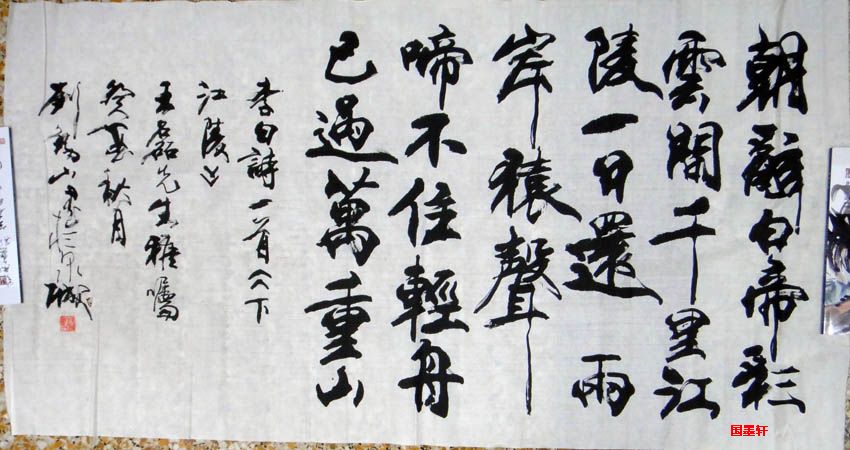 朝辭白帝彩
雲間千里江
陵一日還兩
岸猿聲
啼不住輕舟
已過萬重山
李白詩一首《下
江陵》
王磊先生雅囑
癸秋月
劉山書於泉城
国墨轩